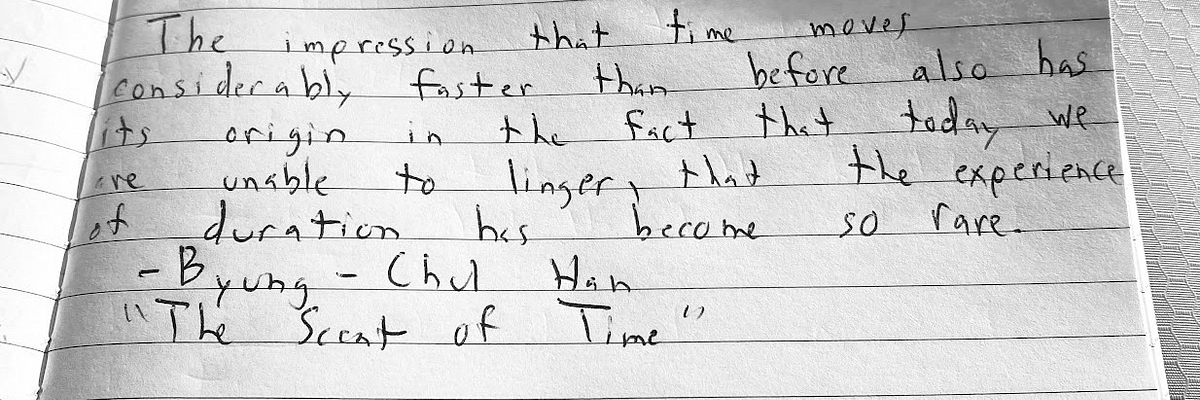 The impression that time moves
considerably faster than before also has
its origin in the fact that today we
are unable to linger, that the experience
of duration has become so rare.
- Byung - Chul Han
"The Scent of Time"